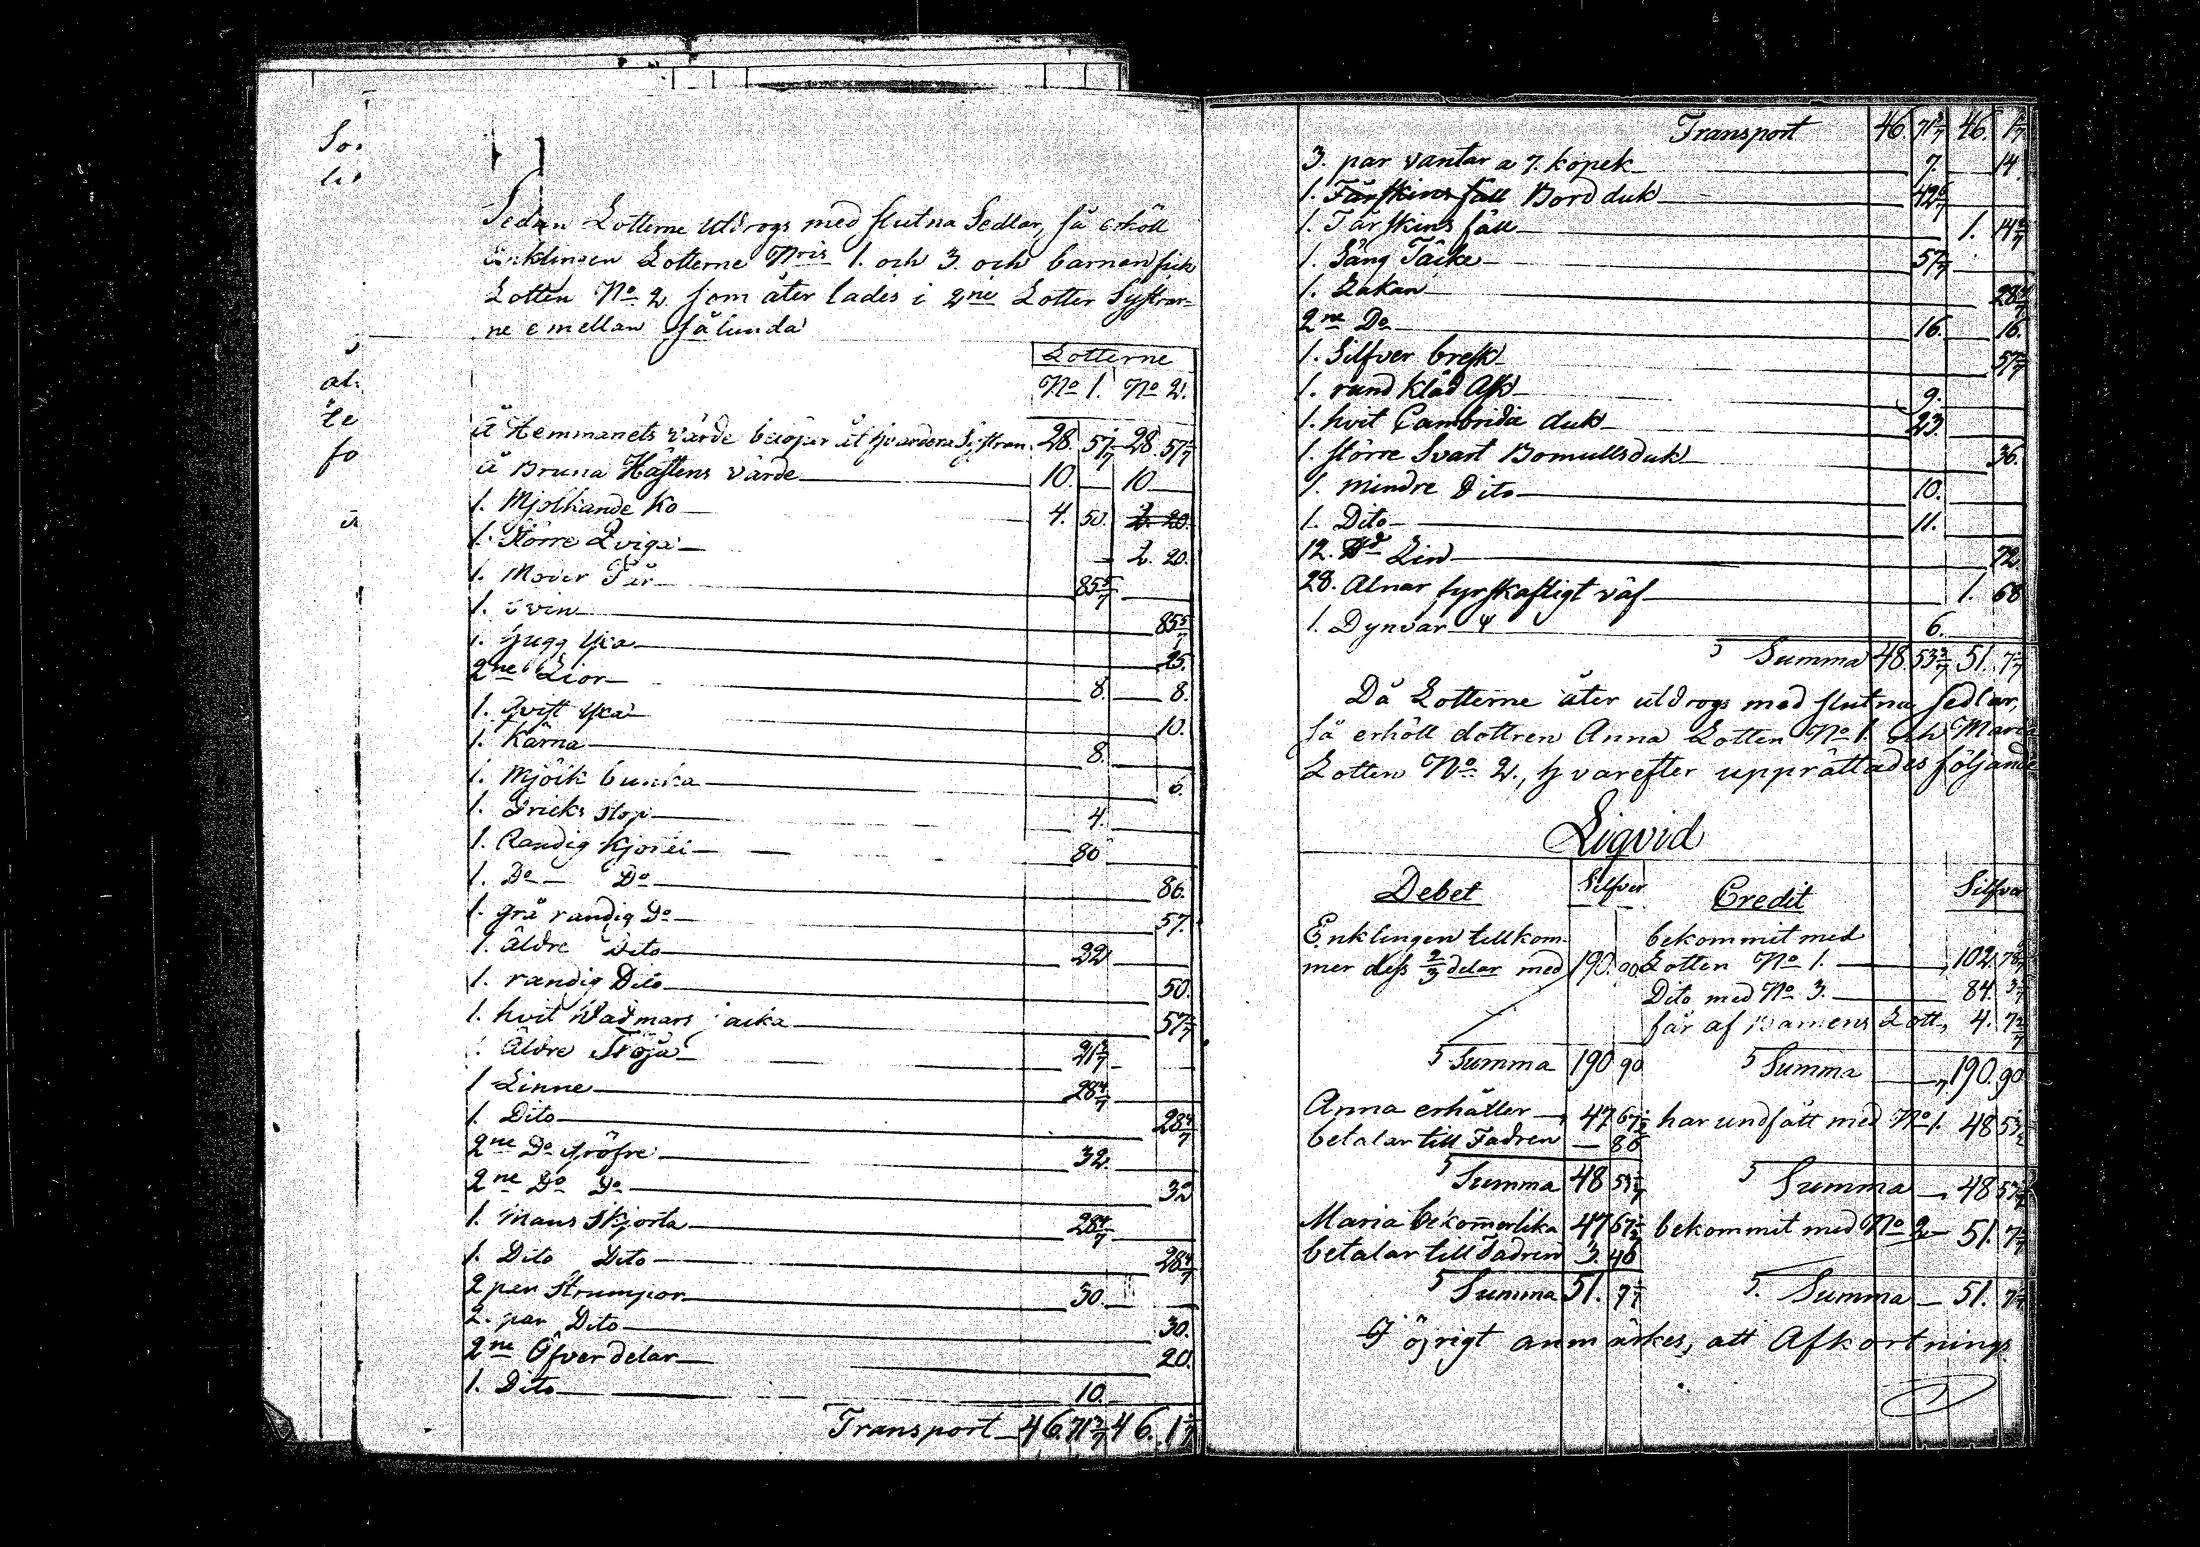 So
lis
al.
te
fo
Sedan Lotterne utdrogs med slutna Sedlar, så erhöll
Enklingen Lotterne Nris 1. och 3. och barnen fick
Lotten No 2. som åter lades i 2ne Lotter Systrar-
ne emellan sålunda
Lotterne
No 1. No 2.
å Hemmanets värde belöper åt hvardera Systran 28. 57 1/7 28. 57 1/7
å Bruna Hästens värde 10. 10
1. Mjölkande Ko 4. 50. 2. 20.
1. Större Qviga 2. 20.
1. Moder Får 85 5/7
1. Svin 85 5/7
1. hugg Yxa 25.
2ne Lior 8. 8.
1. Qvist Yxa 10.
1. Kärna 8.
1. Mjölk bunka 6.
1. Dricks stop 4.
1. Randig Kjortel 80
1. Do Do 86.
1. grå randig Do 57.
1. Äldre Dito 22
1. randig Dito 50.
1. hvit Wadmars jacka 57 1/7
1. Äldre Tröja 21 3/7
1 Linne 28 4/7
1. Dito 28 4/7
2ne Do gröfre 32.
2ne Do Do 32
1. Mans Skjorta 28 4/7
1. Dito Dito 28 4/7
2 par Strumpor 30.
2. par Dito 30.
2ne Öfverdelar 20.
1. Dito 10.
Transport 46. 71 3/7 46. 1 1/7
Transport 46. 71 3/7 46. 1/7
3. par vantar a 7. kopek 7. 14
1. Fårskins fäll Bord duk 42 6/7
1. Fårskins fäll 1. 14 2/7
1. Säng Täcke 57 1/7
1. Lakan 28 4/7
2ne Do 16. 16.
1. Silfver bresk 57 1/7
1. rund kläd Ask 9.
1. hvit Cambrida duk 23.
1. större Svart Bomullsduk 36.
1. mindre Dito 10.
1. Dito 11.
12. Lin 72.
28. Alnar fyrskaftigt väf 1. 68
1. Dynvar 6.
Summa 48. 53 3/7 51. 7 1/7
Då Lotterne åter utdrogs med slutna sedlar,
så erhöll dottren Anna Lotten No 1. och Maria
Lotten No 2., hvarefter upprättades följande
Liqvid
Debet Silfver Credit Silfver
Enklingen tillkom- bekommit med
mer dess 2/3 delar med 190. 90. Lotten No 1. 102. 78
Dito med No 3. 84. 3/7
får af Barnens Lott, 4. 7 2/7
Summa 190 90 Summa 190. 90
Anna erhåller 47. 67 1/2 har undfått med No 1. 48 53
betalar till Fadren 86
Summa 48 53 Summa 48 53
Maria bekommer lika 47 67 1/2 bekommit med No 2 51. 7 1/7
betalar till Fadren 3. 40
Summa 51. 7 1/7 Summa 51. 7 1/7
I öfrigt anmärkes, att Afkortnings